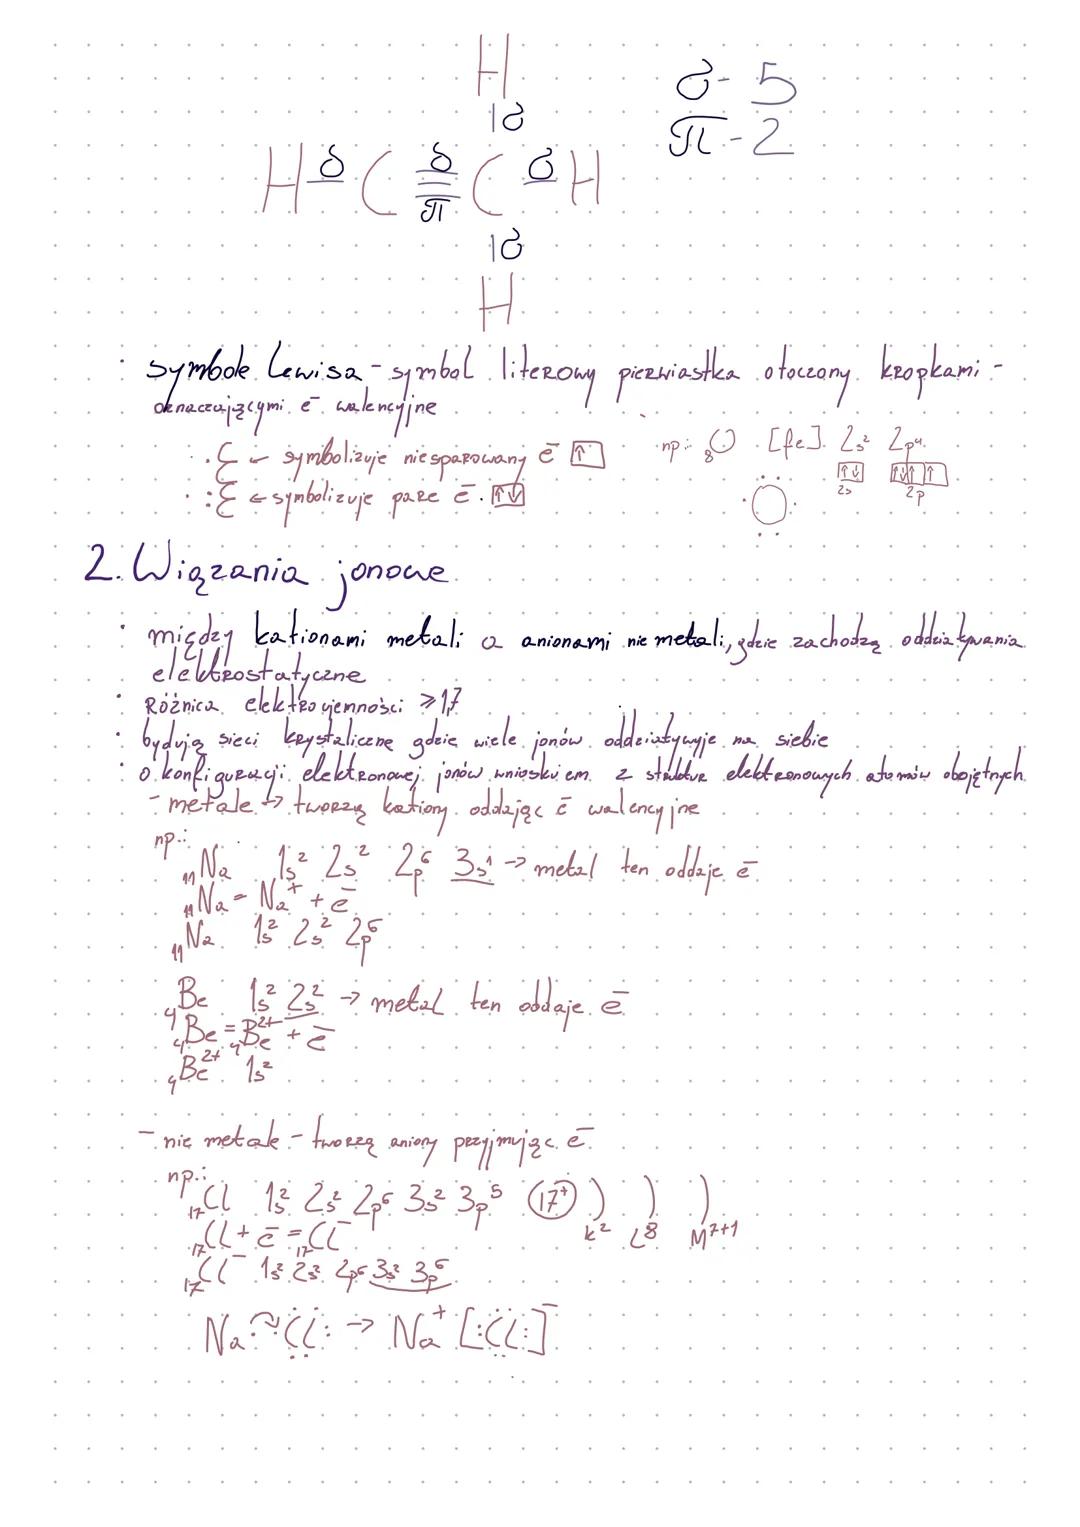 H
σ - 5
|σ
π - 2
H σ C σ≡π C σ H
|σ
H
· symbole Lewisa - symbol literowy pierwiastka otoczony kropkami -
oznaczającymi e⁻ walencyjne
·. E ← symbolizuje niesparowany e⁻ ↑ np.: ₈O [He] 2s² 2p⁴
· :E ← symbolizuje parę e⁻. ↑↓ 2s 2p
O
2. Wiązania jonowe
· między kationami metali a anionami nie metali, gdzie zachodzą oddziaływania
elektrostatyczne
· Różnica elektroujemności ⩾1,7
· bydują sieci krystaliczne gdzie wiele jonów oddziaływuje na siebie
· o konfiguracji elektronowej jonów wnioskujem z struktur elektronowych atomów obojętnych
- metale → tworzą kationy oddając e⁻ walencyjne
np.:
₁₁Na 1s² 2s² 2p⁶ 3s¹ → metal ten oddaje e⁻
₁₁Na = Na⁺ + e⁻
₁₁Na 1s² 2s² 2p⁶
₄Be 1s² 2s² → metal ten oddaje e⁻
₄Be = ₄Be²⁺ + e⁻
₄Be²⁺ 1s²
- nie metale - tworzą aniony przyjmując e⁻
np.:
₁₇Cl 1s² 2s² 2p⁶ 3s² 3p⁵ (17⁺) ) ) )
K² L⁸ M²⁺¹
₁₇Cl + e⁻ = ₁₇Cl⁻
₁₇Cl⁻ 1s² 2s² 2p⁶ 3s² 3p⁶
Na· Cl: → Na⁺ [:Cl:]⁻